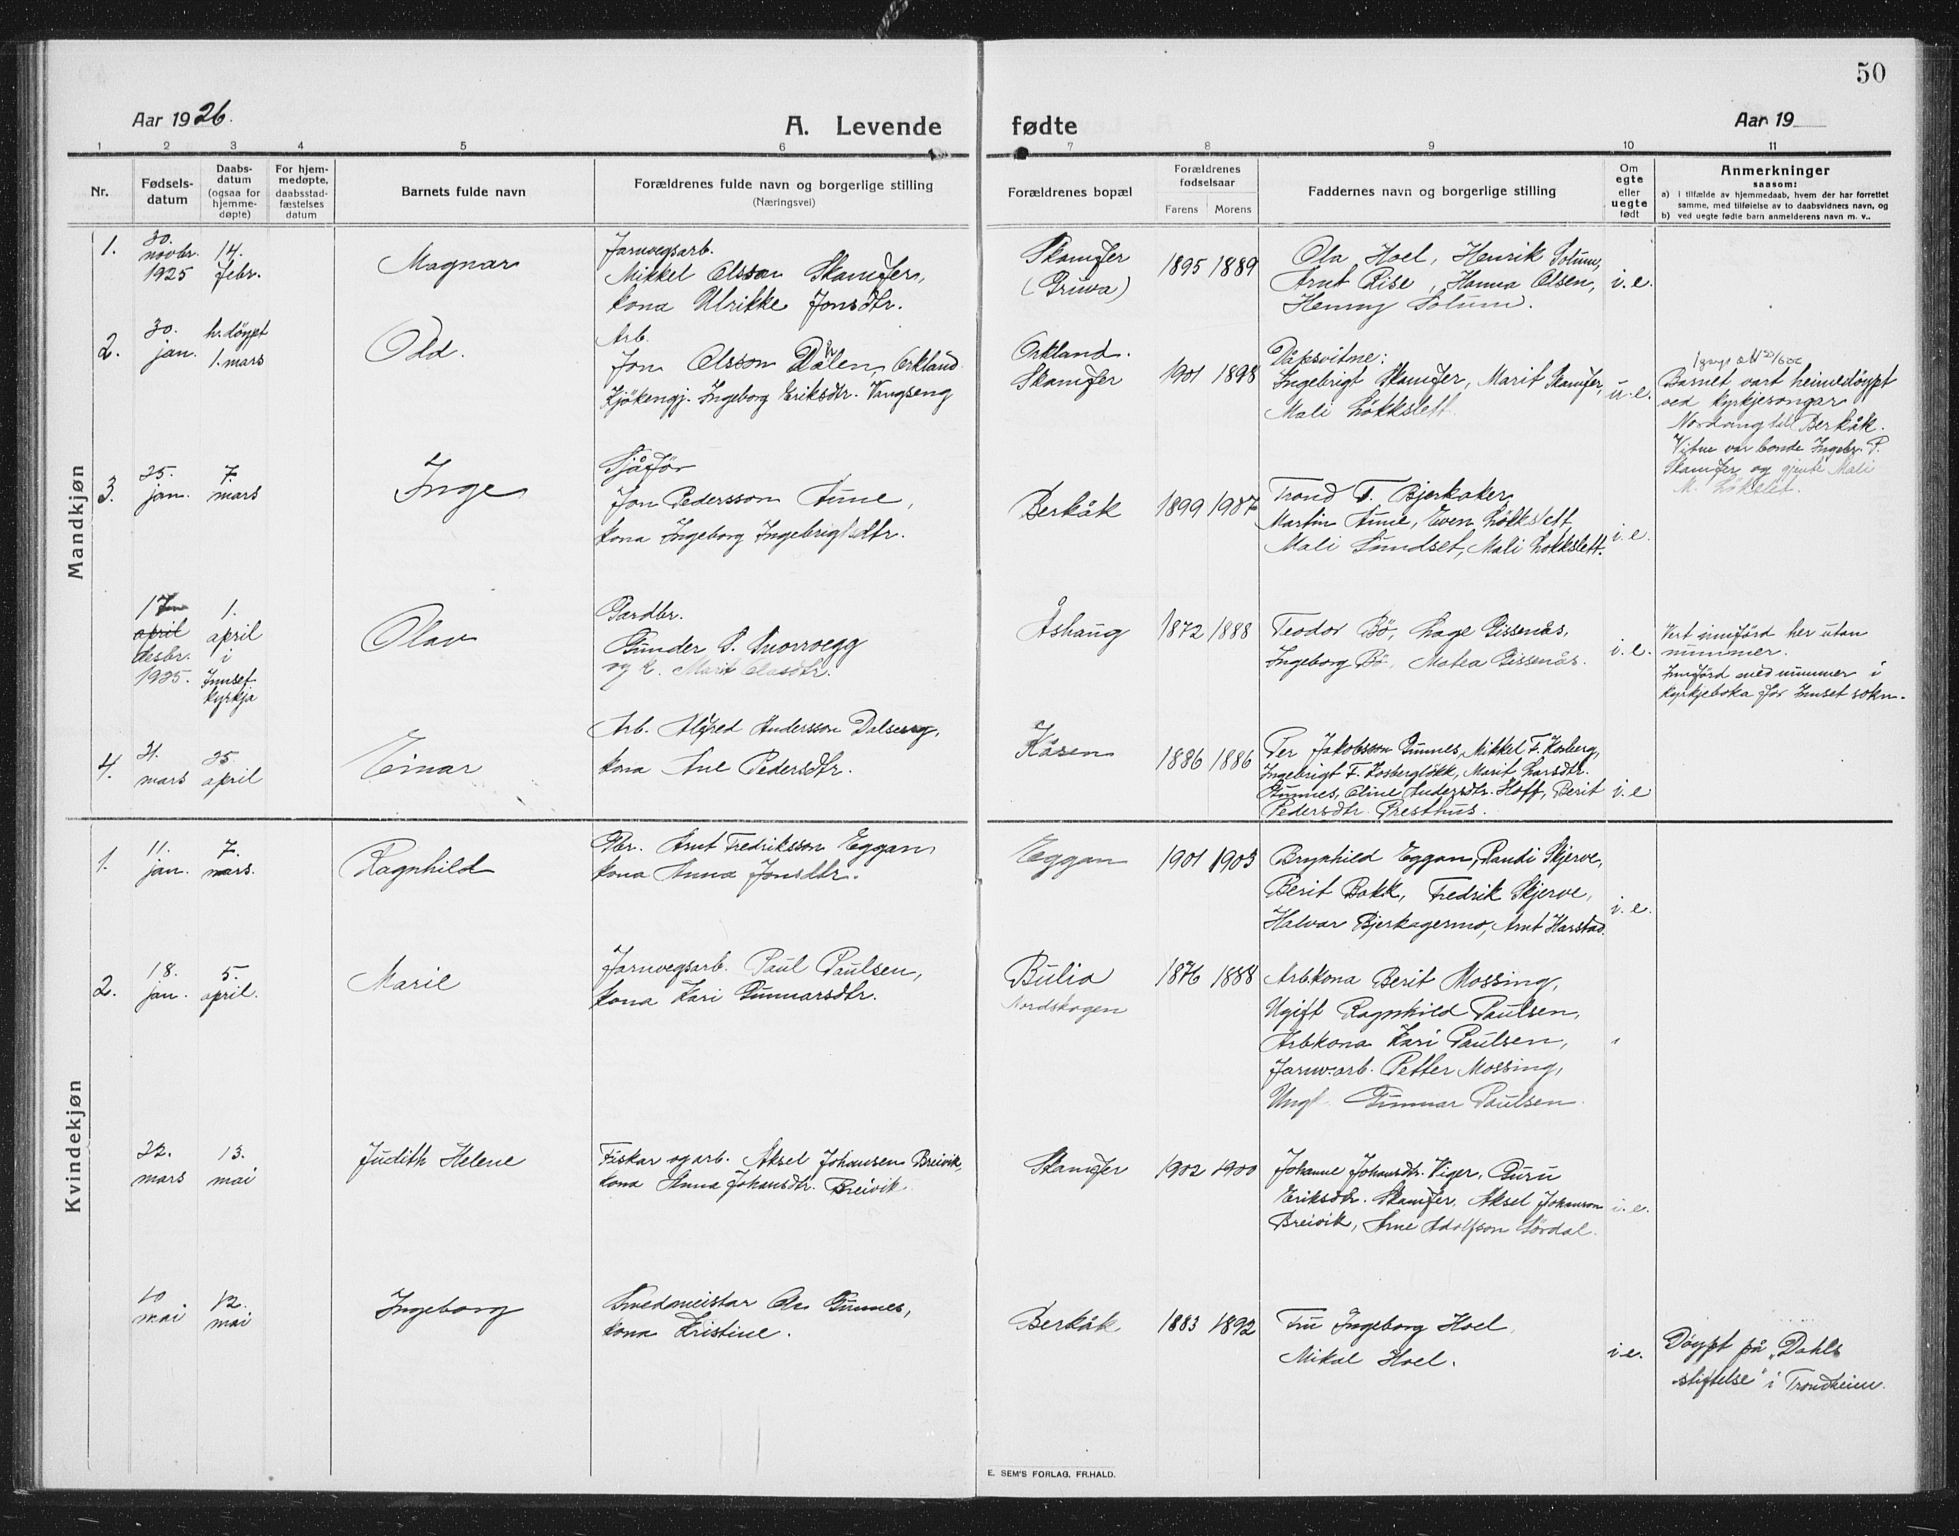 50
Aar 1926.
A. Levende fødte
Aar 19
1 2 3 4 5 6 7 8 9 10 11
Nr.
Fødsels-
datum
Daabs-
datum
(ogsaa for
hjemme-
døpte)
For hjem-
medøpte,
daabsstad-
fæstelses
datum
Barnets fulde navn
Forældrenes fulde navn og borgerlige stilling
(Næringsvei)
Forældrenes bopæl
Forældrenes
fødselsaar
Farens Morens
Faddernes navn og borgerlige stilling
Om
egte
eller
uegte
født
Anmerkninger
saasom:
a) i tilfælde av hjemmedaab, hvem der har forrettet
samme, med tilføielse av to daabsvidners navn, og
b) ved uegte fødte barn anmelderens navn m. v..
Mandkjøn
1.
30.
novbr.
1925
14.
febr.
Magnar
Jarnvegsarb.
Mikkel Olsson Skamfer,
kona Ulrikke Jonsdtr.
Skamfer
(Gruva)
1895 1889
Ola Hoel, Henrik Solum,
Arnt Rise, Hanna Olsen,
Henny Solum.
i. e.
2.
30.
jan.
h.døypt
1. mars
Odd.
Arb.
Jon Olsson Dålen, Orkland
Kjøkengj. Ingeborg Eriksdtr. Vangseng
Orkland.
Skamfer
1901 1898
Dåpsvitne:
Ingebrigt Skamfer, Marit Skamfer,
Mali Løkkslett
u. e.
Barnet vart heimedøypt
ved kyrkjesongar
Nordvang til Berkåk.
Vitne var bonde Ingebr. P.
Skamfer og gjente Mali
M. Løkslet.
3.
25.
jan.
7.
mars
Inge
Sjåfør
Jon Pedersson Aune,
kona Ingeborg Ingebrigtsdtr.
Berkåk
1899 1907
Trond T. Bjerkaker
Martin Aune, Even Løkkslett
Mali Sundset, Mali Løkkslett.
i. e.
17
april
desbr.
1925.
1.
april
i
Innset
kyrkja
Olav
Gardbr.
Gunder P. Snorroegg
og k. Marit Olasdtr.
Åshaug
1872 1888
Teodor Bø, Lage Gissenås,
Ingeborg Bø, Matea Gissenås.
i. e.
Vert innførd her utan
nummer.
Innførd med nummer i
kyrkjeboka for Innset sokn.
4.
21.
mars
25.
april
Einar
Arb. Alfred Andersson Dalseng,
kona Ane Pedersdtr.
Kåsen
1886 1886
Per Jakobsson Gunnes, Mikkel F. Kosberg,
Ingebrigt F. Kosbergløkk, Marit Larsdtr.
Gunnes, Oline Andersdtr. Hoff, Berit
Pedersdtr. Presthus.
i. e
Kvindekjøn
1.
11.
jan.
7.
mars.
Ragnhild
Gbr. Arnt Fredriksson Eggan,
kona Anna Jonsdtr.
Eggan
1901 1903
Brynhild Eggan, Randi Skjerve,
Berit Bakk, Fredrik Skjerve,
Halvar Bjerkagermo, Arnt Harstad.
i. e.
2.
18.
jan.
5.
april.
Marit
Jarnvegsarb. Paul Paulsen,
kona Kari Gunnarsdtr.
Bulia
Nordskogen
1876 1888
Arbkona Berit Mossing,
Ugift Ragnhild Paulsen,
Arbkona Kari Paulsen,
Jarnv.arb. Petter Mossing,
Ungk. Gunnar Paulsen.
22.
mars
13.
mai
Judith Helene
Fiskar og arb. Aksel Johansen Breivik,
kona Anna Johansdtr. Breivik.
Skamfer
1902 1900
Johanne Johansdtr. Viger, Guru
Eriksdtr. Skamfer, Aksel Johanson
Breivik, Arne Adolfson Sørdal.
i. e.
10
mai
12.
mai
Ingeborg
Smedmeistar Ola Gunnes,
kona Kristine.
Berkåk
1883 1892
Fru Ingeborg Hoel
Mikal Hoel.
i e.
Døypt på „Dahls
stiftelse" i Trondheim.
E. SEM'S FORLAG, FR.HALD.